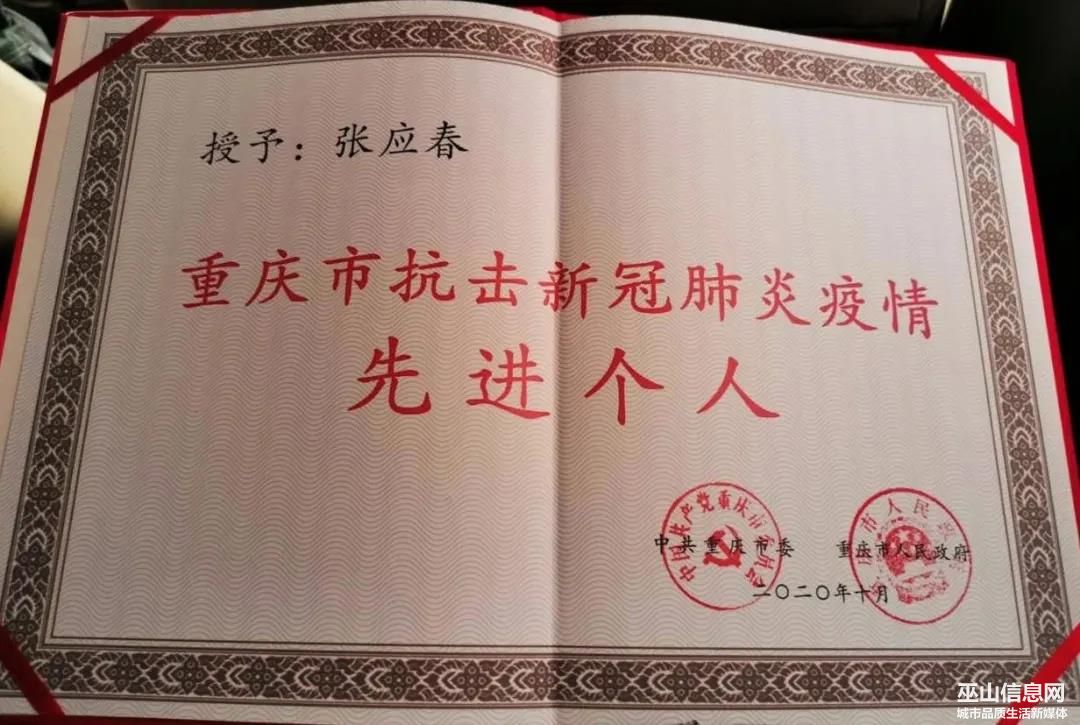 授予：张应春
重庆市抗击新冠肺炎疫情
先进个人
中国共产党重庆市委员会
重庆市人民政府
中共重庆市委 重庆市人民政府
二〇二〇年十月
巫山信息网
城市品质生活新媒体